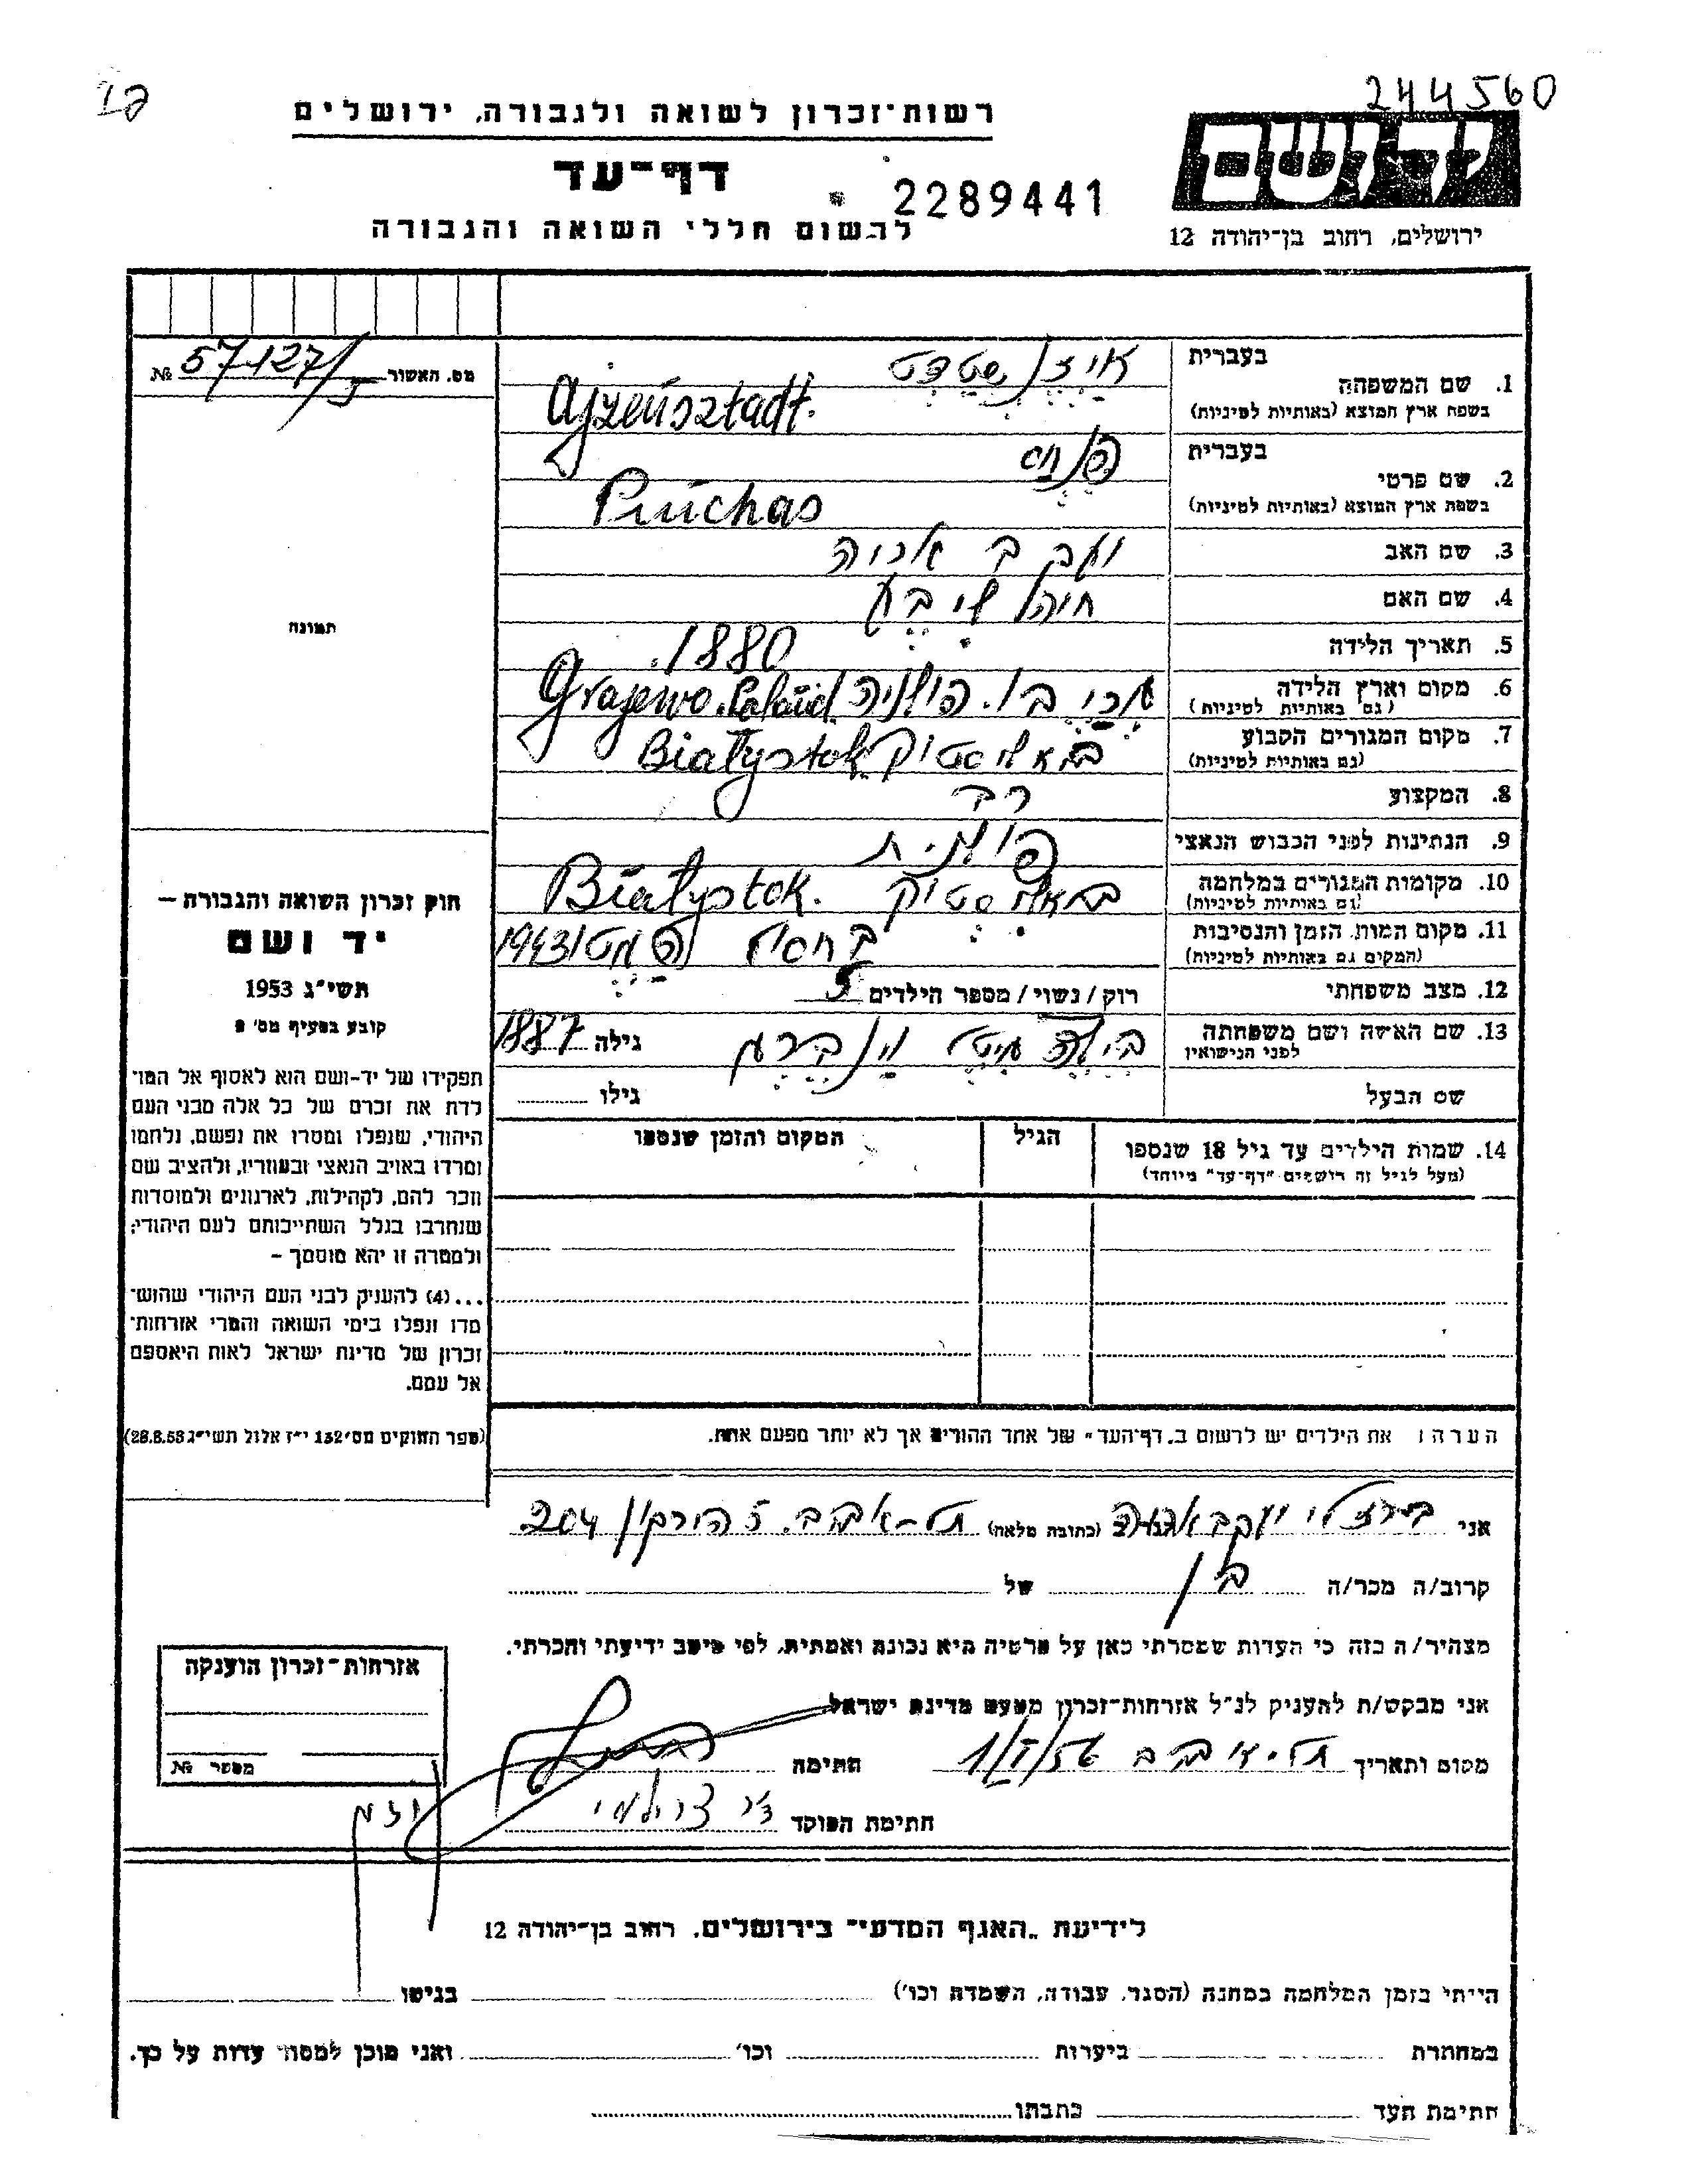 244560
רשות־זכרון לשואה ולגבורה, ירושלים
דף־עד
2289441
לרשום חללי השואה והגבורה
ירושלים, רחוב בן־יהודה 12
מס. האשור 57127/ №
בעברית
1. שם המשפחה
בשפת ארץ המוצא (באותיות לטיניות)
אײַזנשטדט
Ajzensztadt.
בעברית
2. שם פרטי
בשפת ארץ המוצא (באותיות לטיניות)
פנחס
Pinchas
3. שם האב יעקב אריה
4. שם האם
5. תאריך הלידה 1880.
6. מקום וארץ הלידה
(גם באותיות לטיניות)
פולניה Grajewo. Poland.
7. מקום המגורים הקבוע
(גם באותיות לטיניות)
ביאליסטוק Białystok
8. המקצוע רב
9. הנתינות לפני הכבוש הנאצי פולנית
10. מקומות המגורים במלחמה
(גם באותיות לטיניות)
ביאליסטוק Białystok.
11. מקום המות, הזמן והנסיבות
(המקום גם באותיות לטיניות)
1943
12. מצב משפחתי רוק/נשוי/מספר הילדים 5
13. שם האשה ושם משפחתה
לפני הנישואין
וינברג גילה 1887
שם הבעל גילו
14. שמות הילדים עד גיל 18 שנספו
(מעל לגיל זה רושמים "דף־עד" מיוחד)
הגיל
המקום והזמן שנספו
הערה: את הילדים יש לרשום ב„דף־העד" של אחד ההורים אך לא יותר מפעם אחת.
תמונה
חוק זכרון השואה והגבורה –
יד ושם
תשי"ג 1953
קובע בסעיף מס' 2
תפקידו של יד-ושם הוא לאסוף אל המו־
לדת את זכרם של כל אלה מבני העם
היהודי, שנפלו ומסרו את נפשם, נלחמו
ומרדו באויב הנאצי ובעוזריו, ולהציב שם
וזכר להם, לקהילות, לארגונים ולמוסדות
שנחרבו בגלל השתייכותם לעם היהודי;
ולמטרה זו יהא מוסמך –
...(4) להעניק לבני העם היהודי שהוש־
מדו ונפלו בימי השואה והמרי אזרחות־
זכרון של מדינת ישראל לאות היאספם
אל עמם.
(ספר החוקים מס' 132 י"ז אלול תשי"ג 28.8.53)
אני ברזלי יעקב אריה (כתובת מלאה) תל-אביב. הירקון 204
קרוב/ה מכר/ה בן של
מצהיר/ה בזה כי העדות שמסרתי כאן על פרטיה היא נכונה ואמתית, לפי מיטב ידיעתי והכרתי.
אני מבקש/ת להעניק לנ"ל אזרחות־זכרון מטעם מדינת ישראל.
מקום ותאריך תל-אביב חתימה
חתימת הפוקד
אזרחות־זכרון הוענקה
מספר №
לידיעת „האגף המדעי" בירושלים, רחוב בן־יהודה 12
הייתי בזמן המלחמה במחנה (הסגר, עבודה, השמדה וכו') בגיטו
במחתרת ביערות וכו' ואני מוכן למסור עדות על כך.
חתימת העד כתבתו